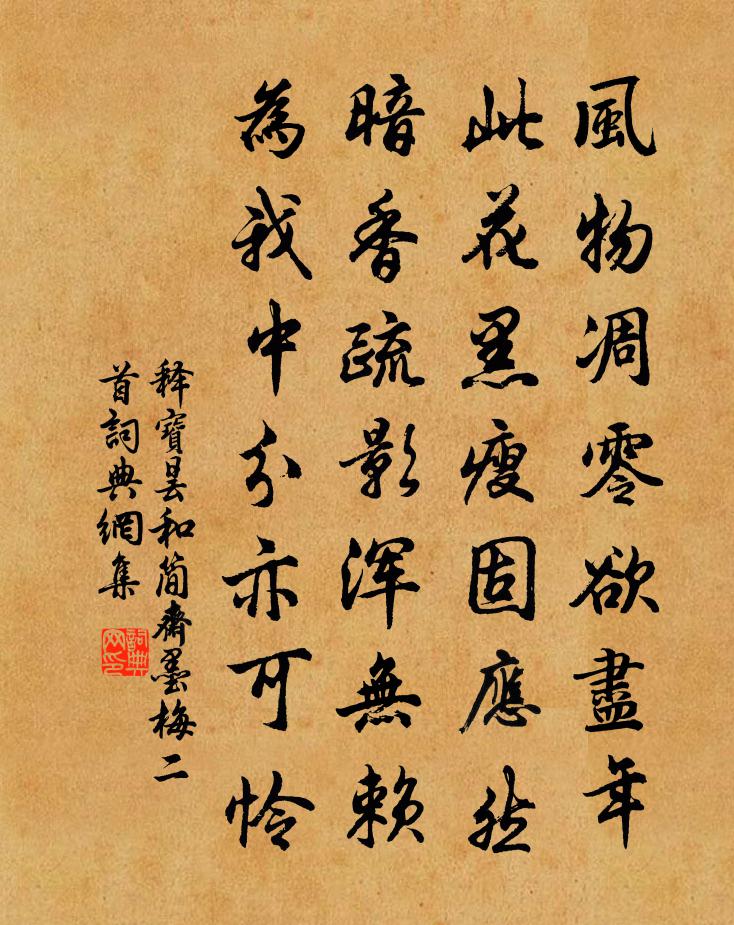 風物凋零欲盡年
此花黑瘦固應然
暗香疏影浑無賴
為我中分亦可怜
释寶昙和简齋墨梅二
首詞典網集
詞典
网印